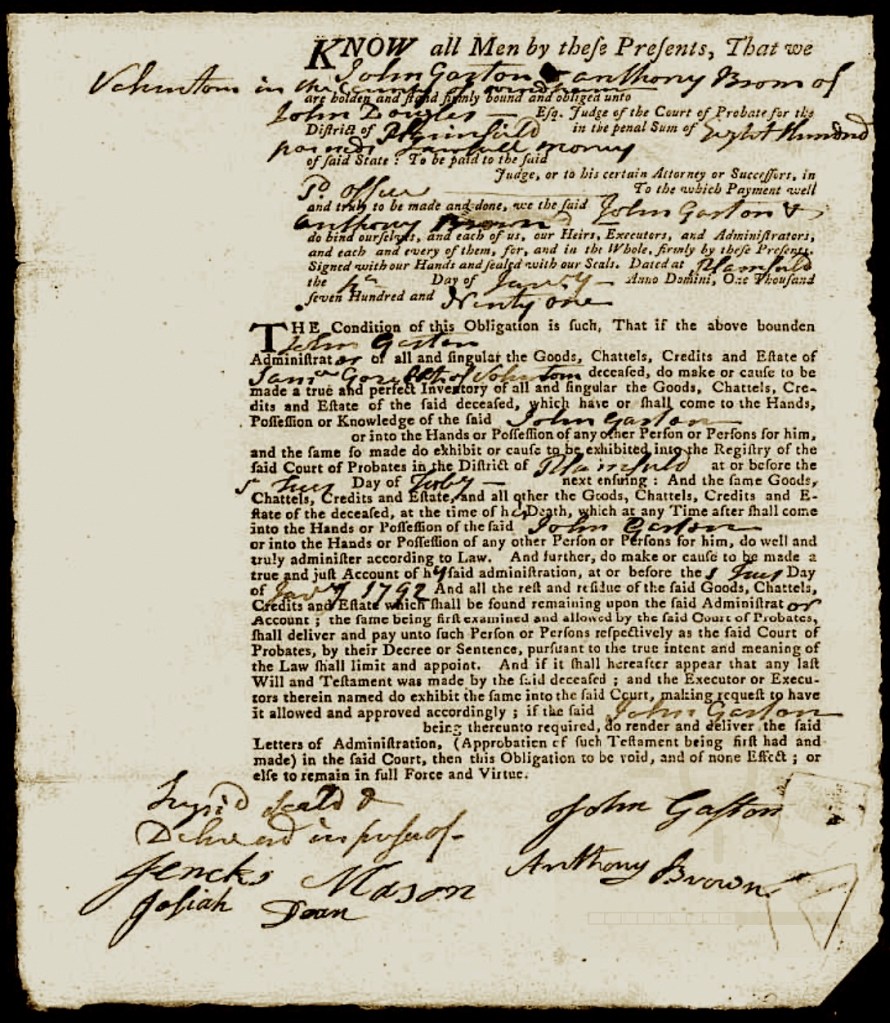 KNOW all Men by theſe Preſents, That we
John Gaston & anthony Brown of
Voluntown in the County of windham
are holden and ſtand firmly bound and obliged unto
John Douglas — Eſq. Judge of the Court of Probate for the
Diſtrict of Plainfield in the penal Sum of Eight Hundred
pounds Lawfull money
of ſaid State: To be paid to the ſaid
Judge, or to his certain Attorney or Succeſſors, in
sd office To the which Payment well
and truly to be made and done, we the ſaid John Gaston &
anthony Brown
do bind ourſelves, and each of us, our Heirs, Executors, and Adminiſtrators,
and each and every of them, for, and in the Whole, firmly by theſe Preſents.
Signed with our Hands and ſealed with our Seals. Dated at Plainfield
the Day of Janry — Anno Domini, One Thouſand
ſeven Hundred and Ninty one
THE Condition of this Obligation is ſuch, That if the above bounden
John Gaston
Adminiſtrator of all and ſingular the Goods, Chattels, Credits and Eſtate of
of Volunton deceaſed, do make or cauſe to be
made a true and perfect Inventory of all and ſingular the Goods, Chattels, Cre-
dits and Eſtate of the ſaid deceaſed, which have or ſhall come to the Hands,
Poſſeſſion or Knowledge of the ſaid John Gaston
or into the Hands or Poſſeſſion of any other Perſon or Perſons for him,
and the ſame ſo made do exhibit or cauſe to be exhibited into the Regiſtry of the
ſaid Court of Probates in the Diſtrict of Plainfield at or before the
Day of next enſuing: And the ſame Goods,
Chattels, Credits and Eſtate, and all other the Goods, Chattels, Credits and E-
ſtate of the deceaſed, at the time of Death, which at any Time after ſhall come
into the Hands or Poſſeſſion of the ſaid John Gaston
or into the Hands or Poſſeſſion of any other Perſon or Perſons for him, do well and
truly adminiſter according to Law. And further, do make or cauſe to be made a
true and juſt Account of hy ſaid adminiſtration, at or before the Day
of Janry 1792 And all the reſt and reſidue of the ſaid Goods, Chattels,
Credits and Eſtate which ſhall be found remaining upon the ſaid Adminiſtrator
Account; the ſame being firſt examined and allowed by the ſaid Court of Probates,
ſhall deliver and pay unto ſuch Perſon or Perſons reſpectively as the ſaid Court of
Probates, by their Decree or Sentence, purſuant to the true intent and meaning of
the Law ſhall limit and appoint. And if it ſhall hereafter appear that any laſt
Will and Teſtament was made by the ſaid deceaſed; and the Executor or Execu-
tors therein named do exhibit the ſame into the ſaid Court, making requeſt to have
it allowed and approved accordingly; if the ſaid John Gaston
being thereunto required, do render and deliver the ſaid
Letters of Adminiſtration, (Approbation of ſuch Teſtament being firſt had and
made) in the ſaid Court, then this Obligation to be void, and of none Effect; or
elſe to remain in full Force and Virtue.
Sign'd Seald &
Deliverd in
John Gaſton
Jencks Mason
Anthony Brown
Joſiah Dean